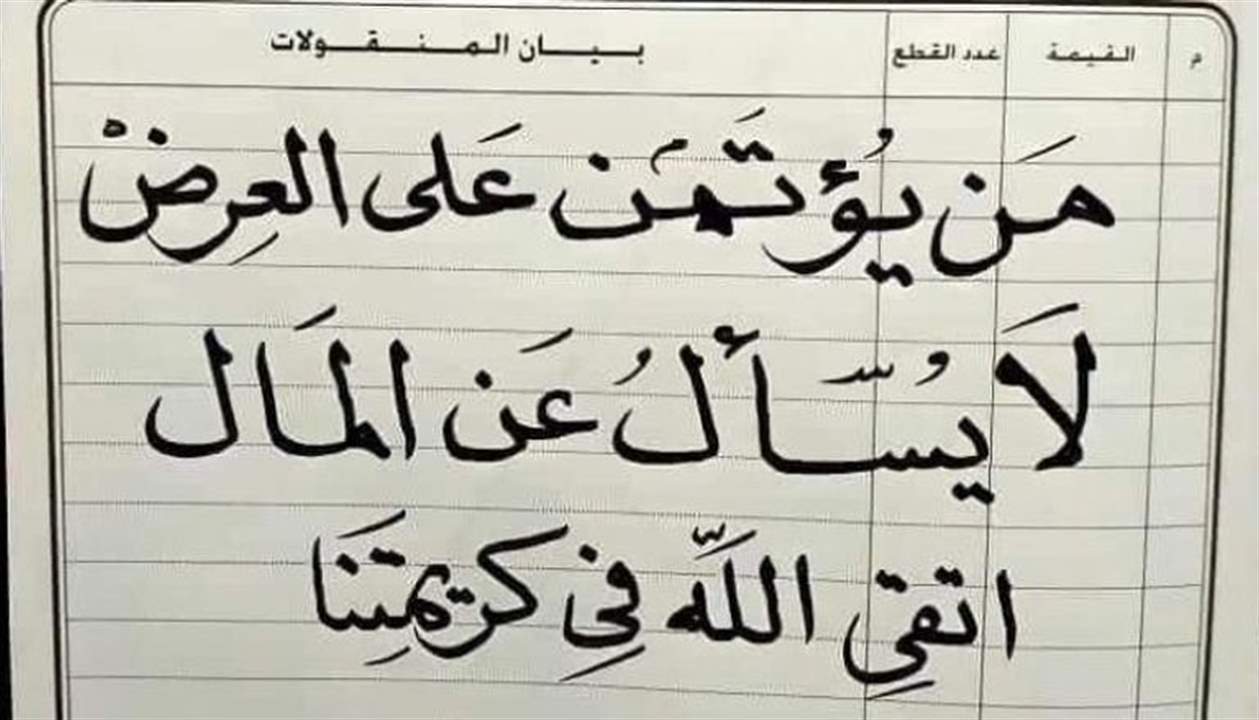 م القيمة عدد القطع بيان المنقولات
مَن يُؤتَمَن عَلى العِرضْ
لَا يُسأَلُ عَن المَال
اتقِي اللَّه فِي كريمتِنَا